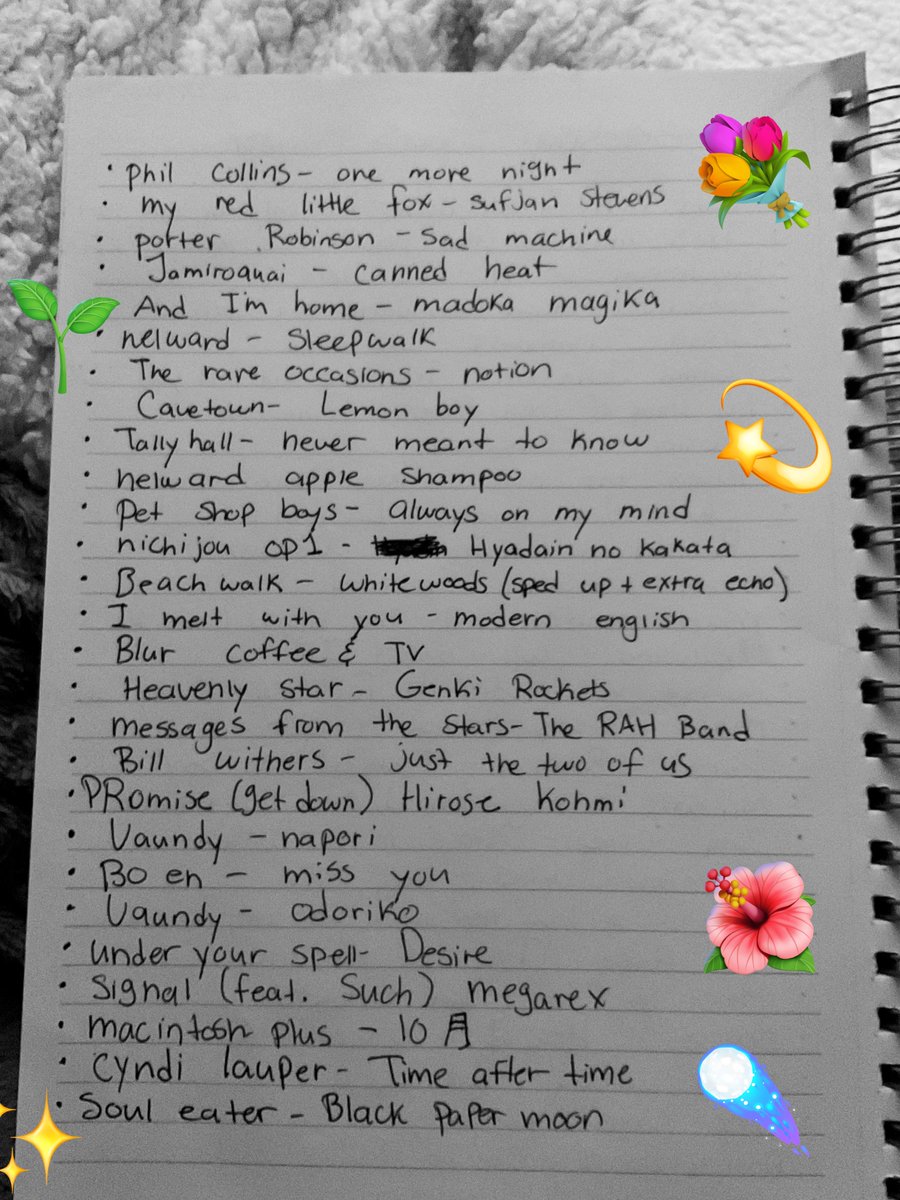 • Phil Collins - one more night
• my red little fox - sufjan stevens
• porter Robinson - Sad machine
• Jamiroquai - canned heat
• And I'm home - madoka magika
• nelward - Sleepwalk
• The rare occasions - notion
• Cavetown - Lemon boy
• Tally hall - never meant to know
• nelward apple shampoo
• Pet shop boys - always on my mind
• nichijou OP1 - Hyadain no kakata
• Beach walk - whitewoods (sped up + extra echo)
• I melt with you - modern english
• Blur coffee & TV
• Heavenly star - Genki Rockets
• messages from the stars - The RAH Band
• Bill withers - just the two of us
• PRomise (get down) Hirose Kohmi
• Vaundy - napori
• Bo en - miss you
• Vaundy - odoriko
• under your spell - Desire
• Signal (feat. Such) megarex
• macintosh plus - 10月
• Cyndi lauper - Time after time
• Soul eater - Black paper moon